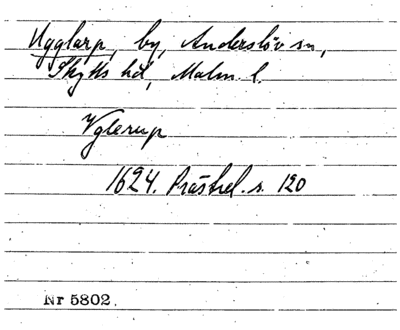 Ugglarp, by, Anderslöv sn,
Skytts hd, Malm. l.
Vglerup
1624. Prästrel. s. 120
Nr 5802.